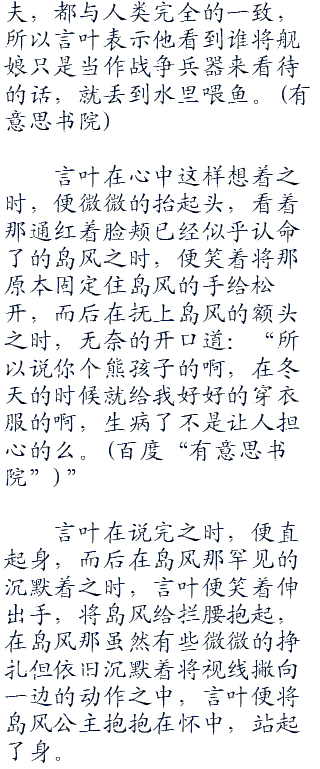 夫，都与人类完全的一致，
所以言叶表示他看到谁将舰
娘只是当作战争兵器来看待
的话，就丢到水里喂鱼。(有
意思书院)
言叶在心中这样想着之
时，便微微的抬起头，看着
那通红着脸颊已经似乎认命
了的岛风之时，便笑着将那
原本固定住岛风的手给松
开，而后在抚上岛风的额头
之时，无奈的开口道：“所
以说你个熊孩子的啊，在冬
天的时候就给我好好的穿衣
服的啊，生病了不是让人担
心的么。(百度“有意思书
院”)”
言叶在说完之时，便直
起身，而后在岛风那罕见的
沉默着之时，言叶便笑着伸
出手，将岛风给拦腰抱起，
在岛风那虽然有些微微的挣
扎但依旧沉默着将视线撇向
一边的动作之中，言叶便将
岛风公主抱抱在怀中，站起
了身。